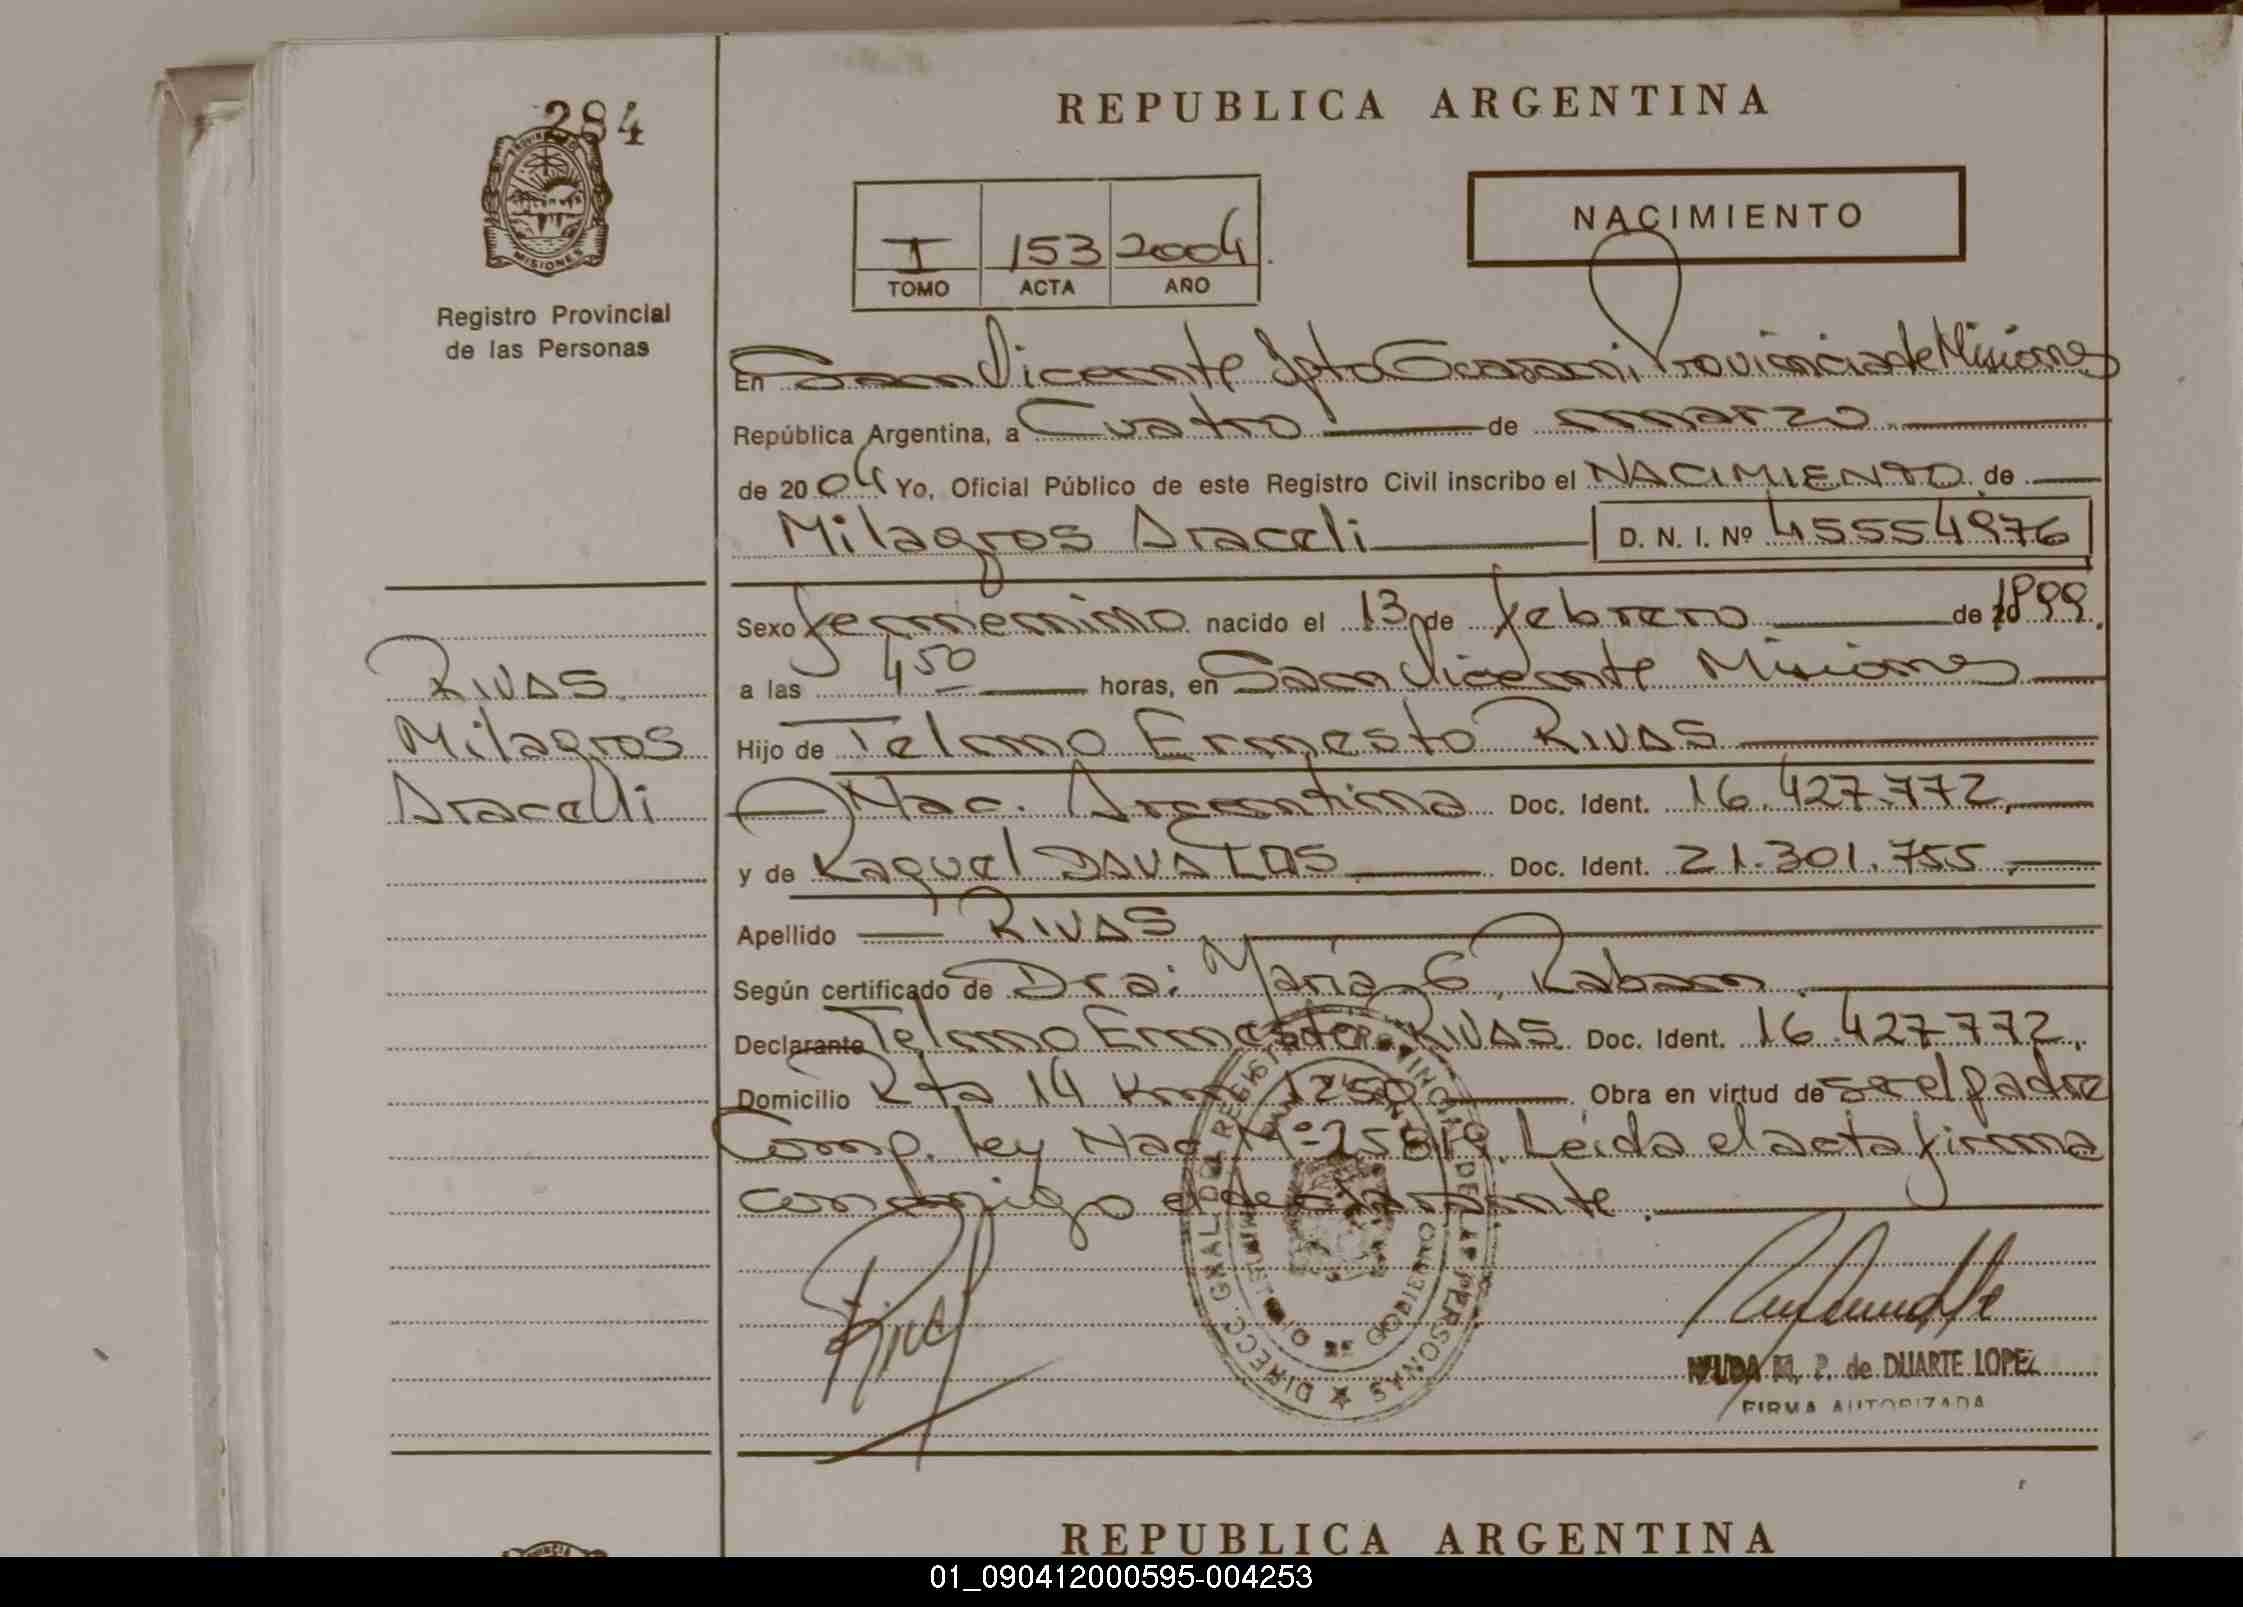 284
PROVINCIA DE MISIONES
Registro Provincial
de las Personas
REPUBLICA ARGENTINA
NACIMIENTO
I 153 2004
TOMO ACTA AÑO
En San Vicente Dpto Guarani, Provincia de Misiones
República Argentina, a Cuatro de marzo
de 2004 Yo, Oficial Público de este Registro Civil inscribo el NACIMIENTO de
Milagros Araceli D. N. I. Nº 45554976
Sexo femenino nacido el 13 de febrero de 1999.
a las 4 50 horas, en San Vicente Misiones
Hijo de Telmo Ernesto RIVAS
Nac. Argentina Doc. Ident. 16.427.772,
y de Raquel DAVALOS Doc. Ident. 21.301.755,
Apellido RIVAS
Según certificado de Dra: Maria G. Raban.
Declarante Telmo Ernesto RIVAS Doc. Ident. 16.427.772,
Domicilio Rta 14 Km 1250 Obra en virtud de ser el padre
Comp. ley Nac Nº 25819. Leida el acta firma
conmigo el declarante.
RIVAS
Milagros
Araceli
DIRECC. GRAL. DEL REGISTRO PROVINCIAL DE LAS PERSONAS
MINISTERIO DE GOBIERNO
M. P. de DUARTE LOPEZ
FIRMA AUTORIZADA
REPUBLICA ARGENTINA
01_090412000595-004253